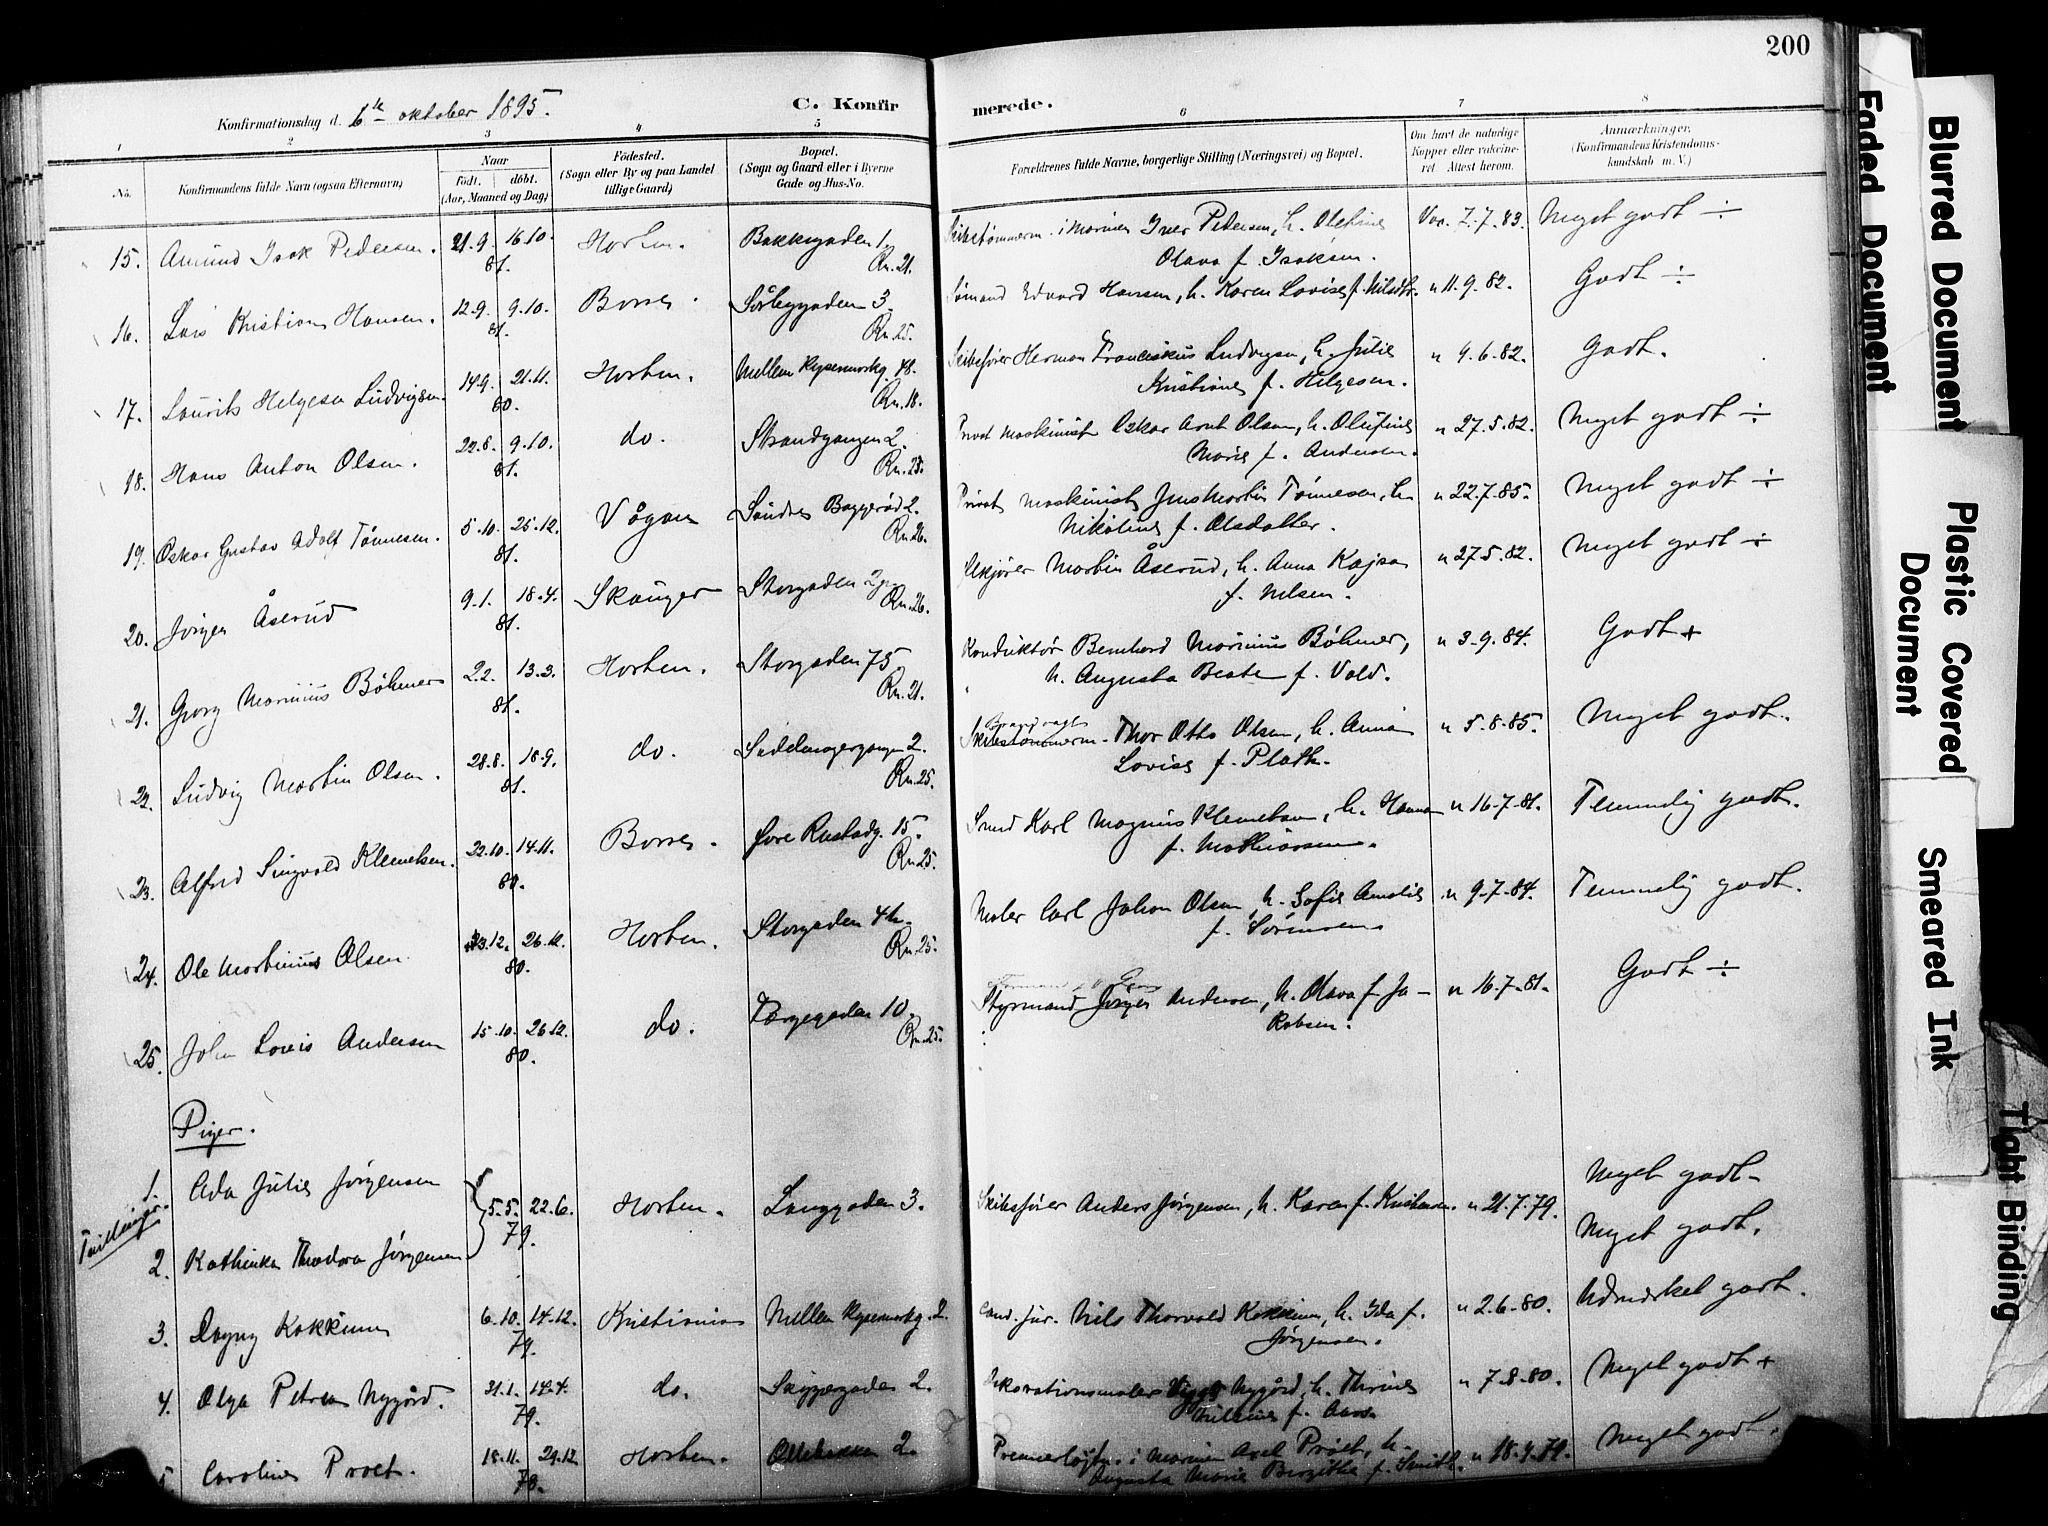 200
Konfirmationsdag d. 6te oktober 1895.
C. Konfirmerede.
1 2 3 4 5 6 7 8
No.
Konfirmandens fulde Navn (ogsaa Efternavn)
Naar
født. døbt.
(Aar, Maaned og Dag)
Fødested.
(Sogn eller By og paa Landet
tillige Gaard)
Bopæl.
(Sogn og Gaard eller i Byerne
Gade og Hus-No.
Forældrenes fulde Navne, borgerlige Stilling (Næringsvei) og Bopæl.
Om havt de naturlige
Kopper eller vakcine-
ret Attest herom.
Anmærkninger.
(Konfirmandens Kristendoms-
kundskab m. V.)
15. Amund Isak Pedersen. 21.9. 16.10. 81. Horten. Bakkegaden 1. Rn. 21. Skibstømmerm. i Marinen Iver Pedersen, h. Olefine Vac. 7.7.83. Meget godt ÷
Olava f. Isaksen.
16. Kristian Hansen. 12.9. 9.10. 81. Borre. Sørbygaden 3. Rn. 25. Sømand Edvard Hansen, h. Karen Lovise f. Nilsdtr. " 11.9.82. Godt ÷
17. Laurits Helgesen Ludvigsen. 14.9. 21.11. 80. Horten. Mellem 18. Rn. 18. Skibsfører Herman Franciskus Ludvigsen, h. Julie " 9.6.82. Godt.
Kristiane f. Helgesen.
18. Hans Anton Olsen. 22.8. 9.10. 81. do. Strandgangen 2. Rn. 25. Privat Maskinist Oskar Arnt Olsen, h. Olufine " 27.5.82. Meget godt ÷
Marie f. Andersen.
19. Oskar Gustav Adolf Tønnesen. 5.10. 25.12. 81. Vågan Søndre Baggerød 2. Rn. 26. Privat Maskinist Jens Martin Tønnesen, h. " 22.7.85. Meget godt ÷
Nikoline f. Olsdatter.
20. Jørgen Åserud 9.1. 18.4. 81. Skauger Storgaden Rn. 26. Martin Åserud, h. Anna Kajsa " 27.5.82. Meget godt ÷
f. Nilsen.
21. Georg Marinius Bøhmer 2.2. 13.3. 81. Horten. Storgaden 75 Rn. 21. Konduktør Bernhard Marinius Bøhmer, " 3.9.84. Godt +
h. Augusta Beate f. Vold.
22. Ludvig Martin Olsen. 28.8. 18.9. 81. do. Sadelmagergangen 2. Rn. 25. Skibstømmerm. Thor Otto Olsen, h. Anna " 5.8.85. Meget godt.
Lovise f. Plath.
23. Alfred Sigvald Klemetsen. 22.10. 14.11. 80. Borre. Øvre Rustadg. 15. Rn. 25. Smed Karl Magnus Klemetsen, h. Hanna " 16.7.81. Temmelig godt.
f. Mathiassen.
24. Ole Martinius Olsen. 23.12. 26.12. 80. Horten. Storgaden Rn. 25. Maler Carl Johan Olsen, h. Sofie Amalie " 9.7.84. Temmelig godt.
f. Sørensen
25. John Lovis Andersen 15.10. 26.12. 80. do. Færgegaden 10. Rn. 25. Styrmand Jørgen Andersen, h. Olava f. Ja- " 16.7.81. Godt ÷
kobsen.
Piger.
Tvillinger.
1. Ada Julie Jørgensen 5.5. 22.6. 79. Horten. Langgaden 3. Skibsfører Anders Jørgensen, h. Karen f. Kristensen. " 21.7.79. Meget godt.
2. Kathinka Theodora Jørgensen Meget godt.
3. Dagny Kokkinn 6.10. 14.12. 79. Kristiania Mellem 2. Cand. jur. Nils Thorvald Kokkinn, h. Ida f. " 2.6.80. Udmærket godt.
Jørgensen.
4. Olga Petrea Nygård. 31.1. 14.4. 79. do. Skippergaden 2. Dekorationsmaler Viggo Nygård, h. Thrine " 7.8.80. Meget godt +
f. Aas.
5. Caroline Proet. 18.11. 29.12. 78. Horten. Ollebakken 2. Premierløjtn. i Marinen Axel Proet, h. " 18.9.79. Meget godt.
Augusta Marie Birgithe f. Smith.
Faded Document
Blurred Document
Plastic Covered
Document
Smeared Ink
Tight Binding